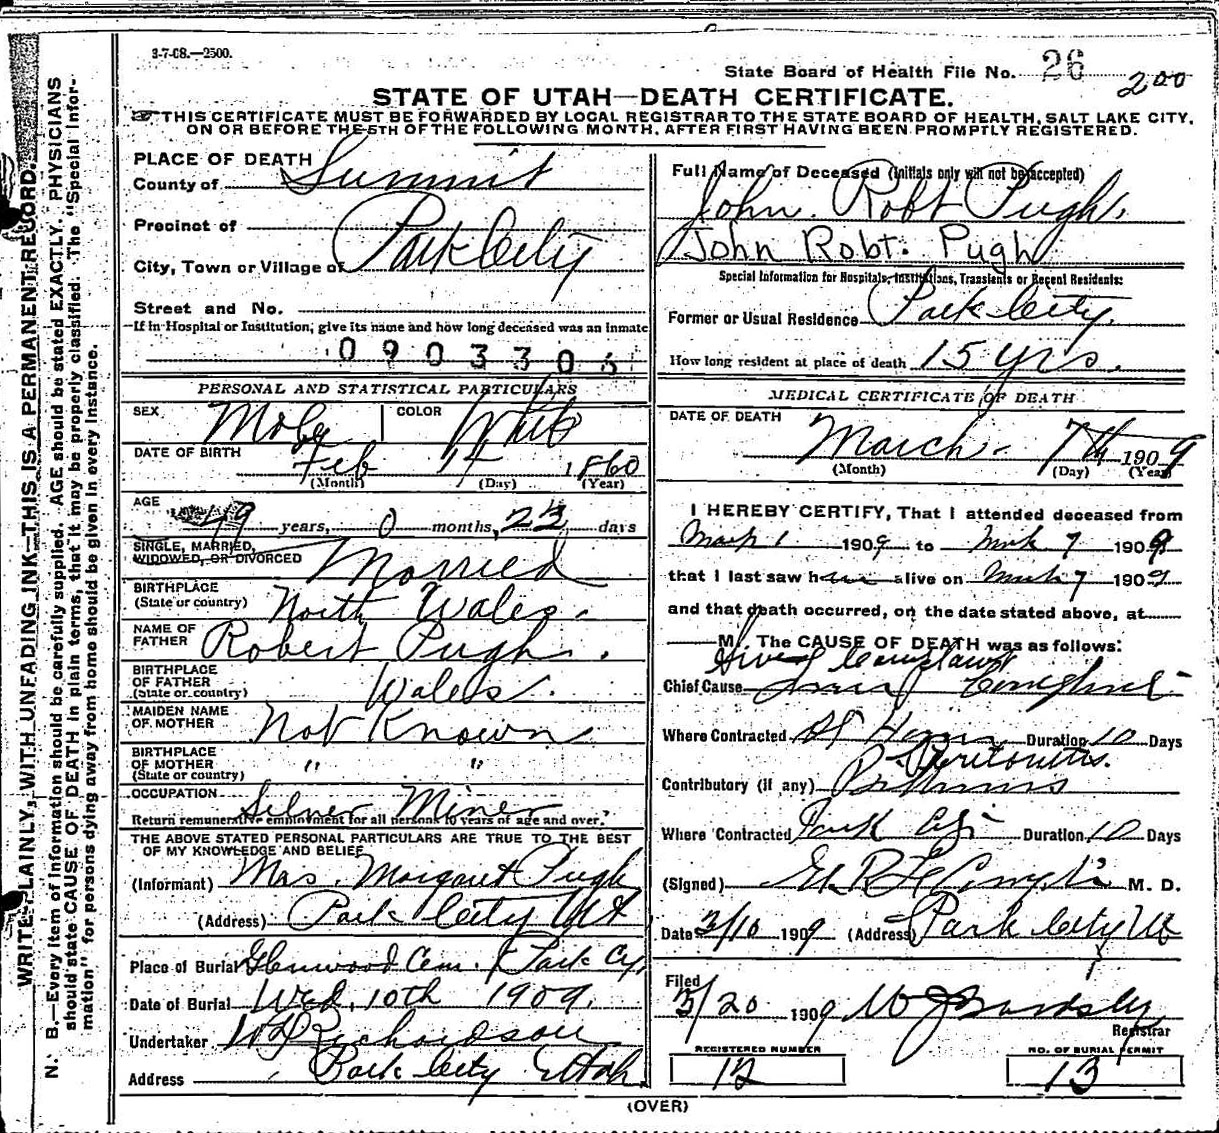 3-7-08.—2500.
State Board of Health File No. 26
200
STATE OF UTAH—DEATH CERTIFICATE.
THIS CERTIFICATE MUST BE FORWARDED BY LOCAL REGISTRAR TO THE STATE BOARD OF HEALTH, SALT LAKE CITY,
ON OR BEFORE THE 5TH OF THE FOLLOWING MONTH, AFTER FIRST HAVING BEEN PROMPTLY REGISTERED.
WRITE PLAINLY, WITH UNFADING INK—THIS IS A PERMANENT RECORD.
N. B.—Every item of information should be carefully supplied. AGE should be stated EXACTLY. PHYSICIANS
should state CAUSE OF DEATH in plain terms, that it may be properly classified. The "Special Infor-
mation" for persons dying away from home should be given in every instance.
PLACE OF DEATH
County of Summit
Precinct of
City, Town or Village of Park City
Street and No.
If in Hospital or Institution, give its name and how long deceased was an inmate
0903306
PERSONAL AND STATISTICAL PARTICULARS
SEX Male COLOR White
DATE OF BIRTH Feb 14 1860
(Month) (Day) (Year)
AGE 49 years, 0 months, 22 days
SINGLE, MARRIED,
WIDOWED, OR DIVORCED Married
BIRTHPLACE
(State or country) North Wales.
NAME OF
FATHER Robert Pugh.
BIRTHPLACE
OF FATHER
(State or country) Wales.
MAIDEN NAME
OF MOTHER Not Known
BIRTHPLACE
OF MOTHER
(State or country) " "
OCCUPATION Silver Miner
Return remunerative employment for all persons 10 years of age and over.
THE ABOVE STATED PERSONAL PARTICULARS ARE TRUE TO THE BEST
OF MY KNOWLEDGE AND BELIEF
(Informant) Mrs. Margaret Pugh
(Address) Park City Ut
Place of Burial Glenwood Cem. Park Cy,
Date of Burial Wed. 10th 1909.
Undertaker Richardson
Address Park City Utah.
Full Name of Deceased (Initials only will not be accepted)
John Robt Pugh.
John Robt. Pugh
Special Information for Hospitals, Institutions, Transients or Recent Residents:
Former or Usual Residence Park City.
How long resident at place of death 15 yrs.
MEDICAL CERTIFICATE OF DEATH
DATE OF DEATH
March 7th 1909
(Month) (Day) (Year)
I HEREBY CERTIFY, That I attended deceased from
Mch 1 1909 to Mch 7 1909
that I last saw him alive on Mch 7 1909
and that death occurred, on the date stated above, at
M. The CAUSE OF DEATH was as follows:
Chief Cause
Where Contracted At Home Duration 10 Days
Peritonitis.
Contributory (if any)
Where Contracted Park City Duration 10 Days
(Signed) M. D.
Date 3/10 1909 (Address) Park City Ut
Filed
3/20 1909
Registrar
REGISTERED NUMBER
12
NO. OF BURIAL PERMIT
13
(OVER)